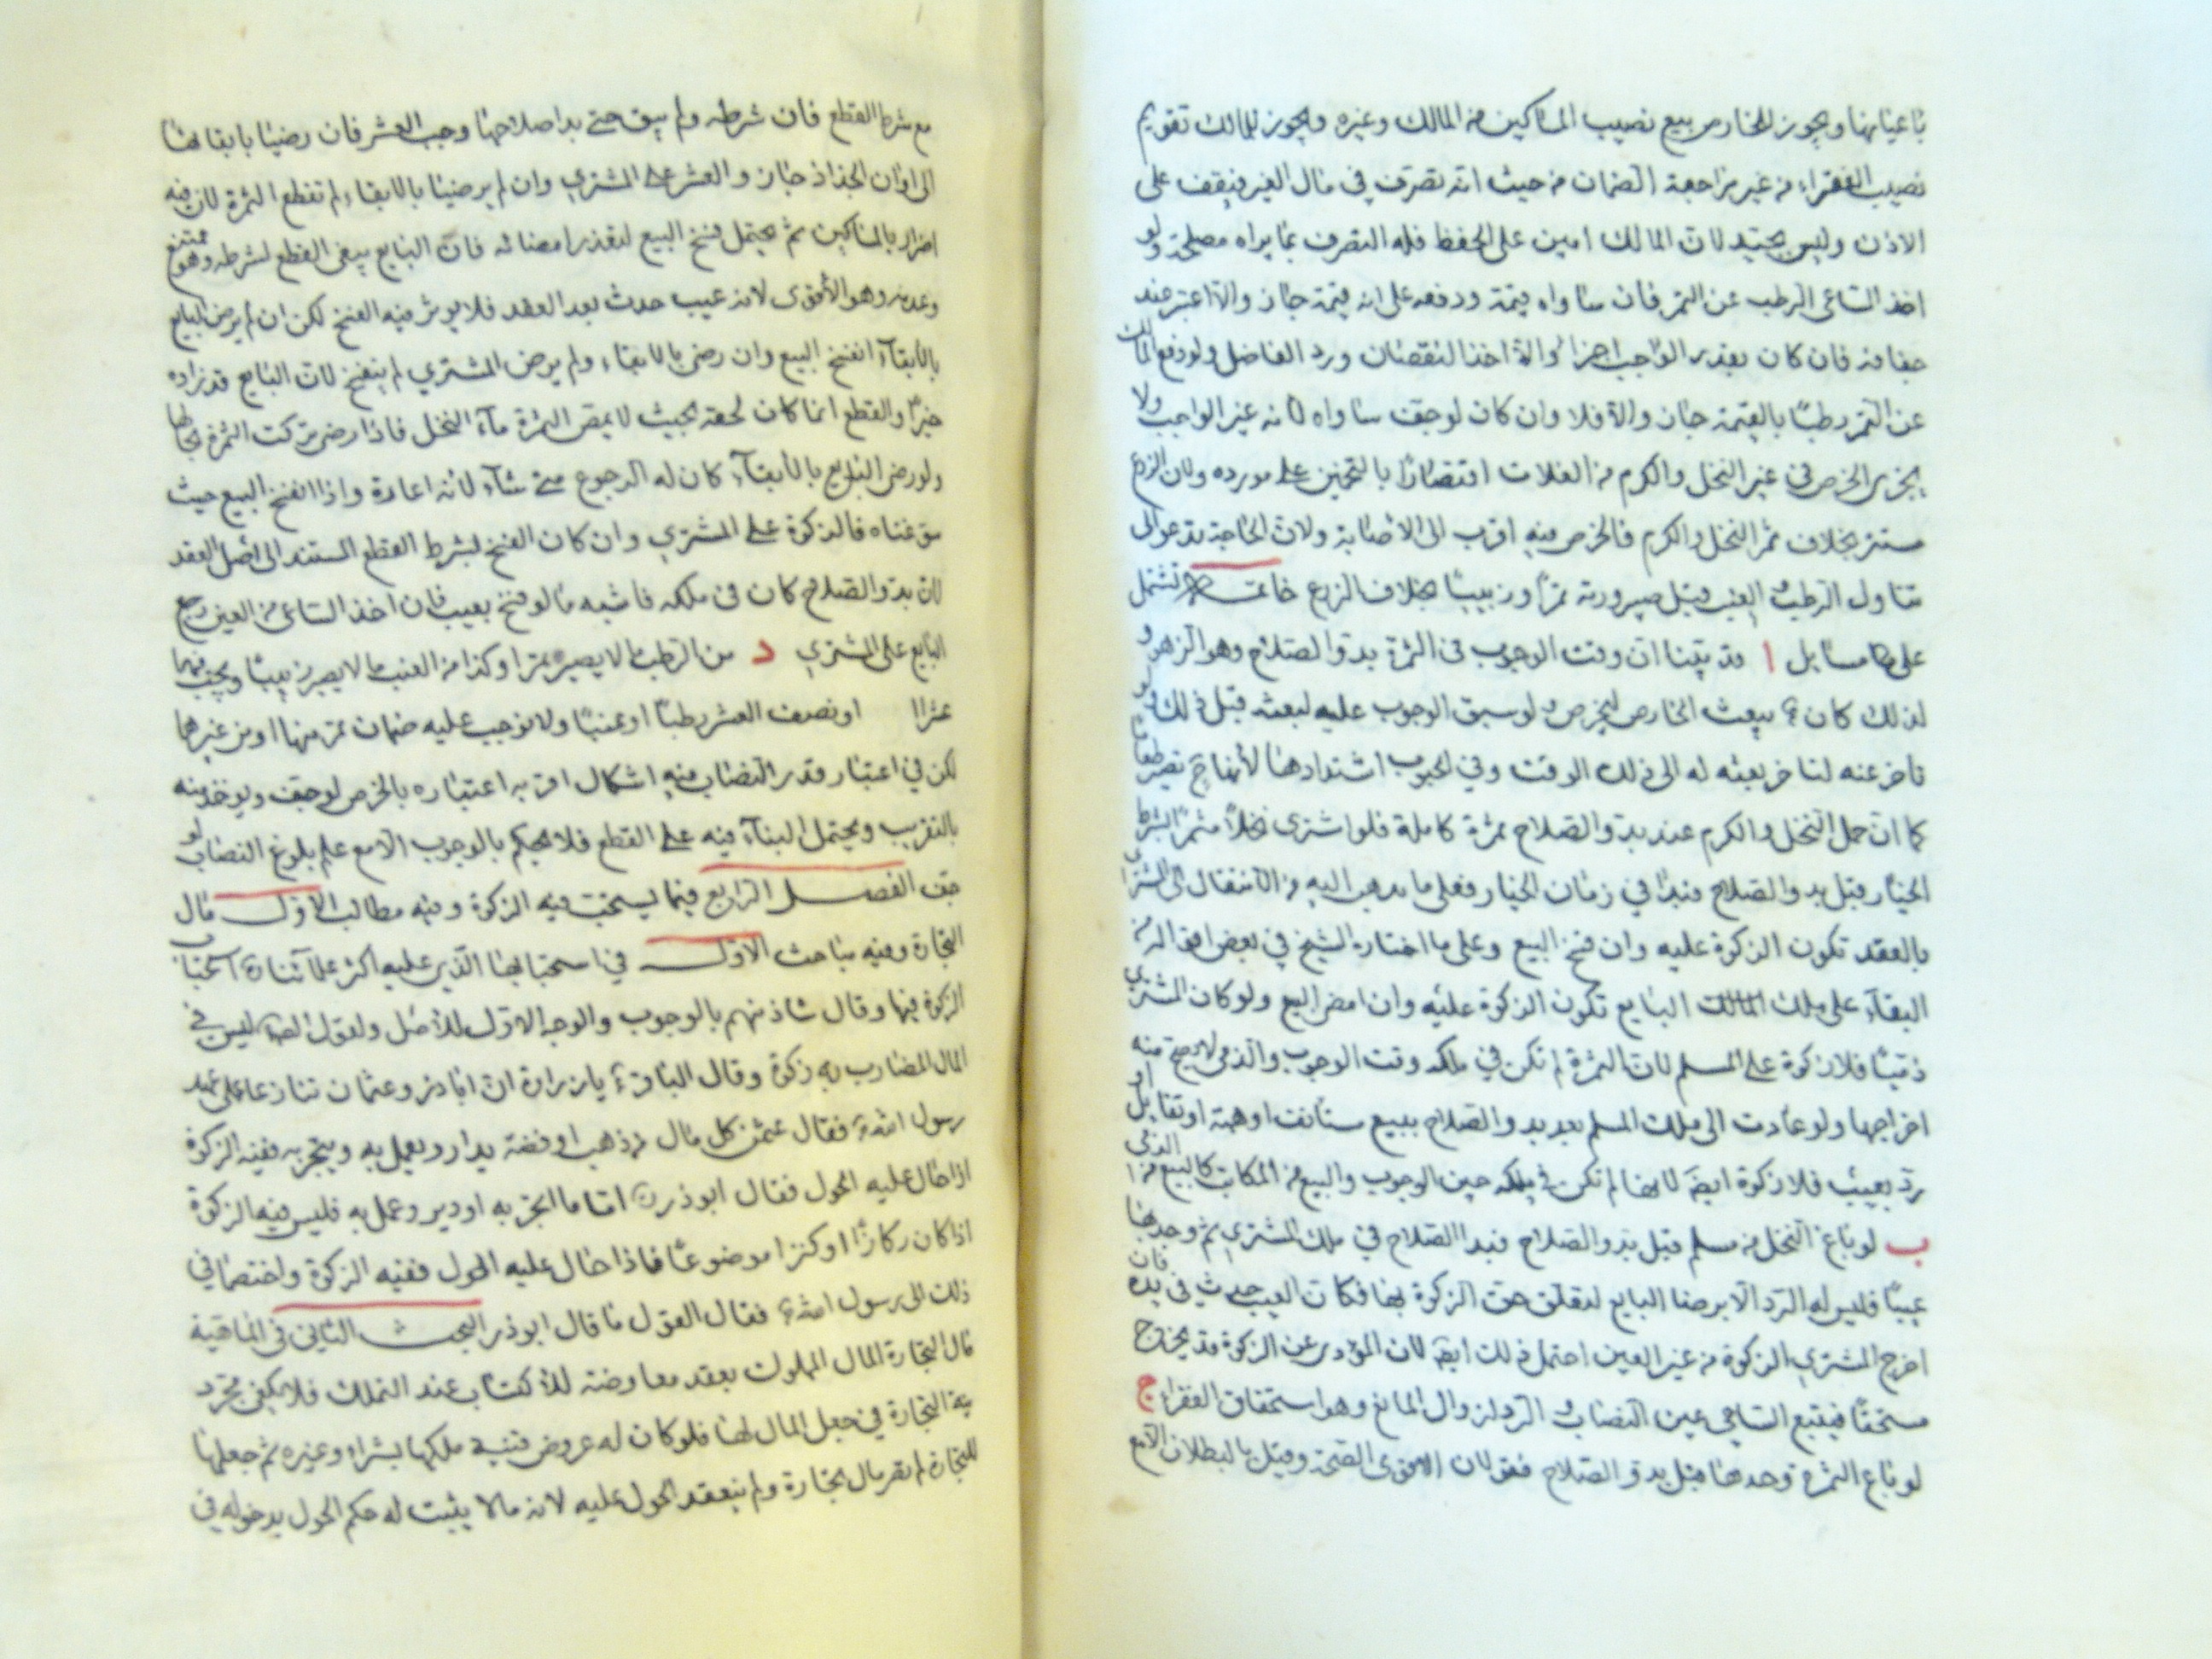 باعيانها ويجوز للخارص بيع نصيب المساكين من المالك وغيره ويجوز للمالك تقويم
نصيب الفقراء من غير مراجعة الضمان من حيث انه تصرف في مال الغير فيقف على
الاذن وليس بجيد لان المالك امين على الحفظ فله التصرف بما يراه مصلحة ولو
اخذ الساعي الرطب عن التمر فان ساواه قيمة ودفعه على انه قيمة جاز والا اعتبر عند
جفافه فان كان بقدر الواجب اجزا والا اخذ النقصان ورد الفاضل ولو دفع المالك
عن التمر رطبا بالقيمة جاز والا فلا وان كان لو جف ساواه لانه غير الواجب ولا
يجزي الخرص في غير النخل والكرم من الغلات اقتصارا بالتخمين على مورده ولان الزرع
مستتر بخلاف ثمر النخل والكرم فالخرص فيه اقرب الى الاصابة ولان الحاجة تدعو الى
تناول الرطب العنب قبل صيرورته تمرا وزبيبا بخلاف الزرع خاتمة تشتمل
على مسايل ا قد بينا ان وقت الوجوب في الثمرة بدو الصلاح وهو الزهو و
لذلك كان ع يبعث الخارص ليخرص ولو سبق الوجوب عليه لبعثه قبل ذلك ولو
تاخر عنه لتاخر بعثه له الى ذلك الوقت وفي الحبوب اشتدادها لانها ح تصير طعاما
كما ان حمل النخل والكرم عند بدو الصلاح ثمرة كاملة فلو اشترى نخلا مثمرا بشرط
الخيار قبل بدو الصلاح فبدا في زمان الخيار فعلى ما يذهب اليه من الانتقال الى المشتري
بالعقد تكون الزكوة عليه وان فسخ البيع وعلى ما اختاره الشيخ في بعض اقواله من
البقاء على ملك البايع تكون الزكوة عليه وان امضى البيع ولو كان المشتري
ذميا فلا زكوة على المسلم لان الثمرة لم تكن في ملكه وقت الوجوب والذمي لا يصح منه
اخراجها ولو عادت الى ملك المسلم بعد بدو الصلاح ببيع مستانف او هبة او تقايل او
رد بعيب فلا زكوة ايضا لانها لم تكن في ملكه حين الوجوب والبيع من المكاتب كالبيع من الذمي
ب لو باع النخل من مسلم قبل بدو الصلاح فبدا الصلاح في ملك المشتري ثم وجد بها
عيبا فليس له الرد الا برضا البايع لتعلق حق الزكوة بها فكان العيب حدث في يده فان
اخرج المشتري الزكوة من غير العين احتمل ذلك ايضا لان المؤدى عن الزكوة قد يخرج
مستحقا فيتبع الساعي عين النصاب و الرد لزوال المانع وهو استحقاق الفقراء ج
لو باع الثمرة وحدها قبل بدو الصلاح فقولان الاقوى الصحة وقيل بالبطلان الا مع
مع شرط القطع فان شرطه ولم يتفق حتى بدا صلاحها وجب العشر فان رضيا بابقائها
الى اوان الجذاذ جاز والعشر على المشتري وان لم يرضيا بالابقاء لم تقطع الثمرة لان فيه
اضرار بالمساكين ثم يحتمل فسخ البيع لتعذر امضائه فان البايع يبغي القطع لشرطه وهو ممتنع
وعدمه وهو الاقوى لانه عيب حدث بعد العقد فلا يوثر فيه الفسخ لكن ان لم يرض البايع
بالابقاء انفسخ البيع وان رضى بالابقاء ولم يرض المشتري لم ينفسخ لان البايع قد زاده
خيرا والقطع انما كان لحقه بحيث لا يمص الثمرة ماء النخل فاذا رضى تركت الثمرة بحالها
ولو رضى البايع بالابقاء كان له الرجوع متى شاء لانه اعارة واذا انفسخ البيع حيث
سوغناه فالزكوة على المشتري وان كان الفسخ لشرط القطع المستند الى اصل العقد
لان بدو الصلاح كان في ملكه فاشبه ما لو فسخ بعيب فان اخذ الساعي من العين رجع
البايع على المشتري د من الرطب ما لا يصير تمرا وكذا من العنب ما لا يصير زبيبا ويجب فيهما
عشرا او نصف العشر رطبا او عنبا ولا نوجب عليه ضمان تمر منها او من غيرها
لكن في اعتبار قدر النصاب فيه اشكال اقربه اعتباره بالخرص لو جف ويوخذ منه
بالتقريب ويحتمل البناء فيه على القطع فلا يحكم بالوجوب الا مع علم بلوغ النصاب لو
جف الفصل الرابع فيما يستحب فيه الزكوة وفيه مطالب الاول مال
التجارة وفيه مباحث الاول في استحبابها الذي عليه اكثر علمائنا استحباب
الزكوة فيها وقال شاذ منهم بالوجوب والوجه الاول للاصل ولقول الصادق ليس في
المال المضارب به زكوة وقال الباقر ع يا زرارة ان اباذر وعثمان تنازعا على عهد
رسول الله ص فقال عثمن كل مال من ذهب او فضة يدار ويعمل به ويتجر به ففيه الزكوة
اذا حال عليه الحول فقال ابوذر اما ما اتجر به او دير وعمل به فليس فيه الزكوة
اذا كان ركازا او كنزا موضوعا فاذا حال عليه الحول ففيه الزكوة واختصما في
ذلك الى رسول الله ص فقال القول ما قال ابوذر البحث الثاني في الماهية
مال التجارة المال المملوك بعقد معاوضة للاكتساب عند التملك فلا يكفي مجرد
نية التجارة في جعل المال لها فلو كان له عروض قنية ملكها بشراء وغيره ثم جعلها
للتجارة لم تصر مال تجارة ولم ينعقد الحول عليه لانه ما لا يثبت له حكم الحول بدخوله في